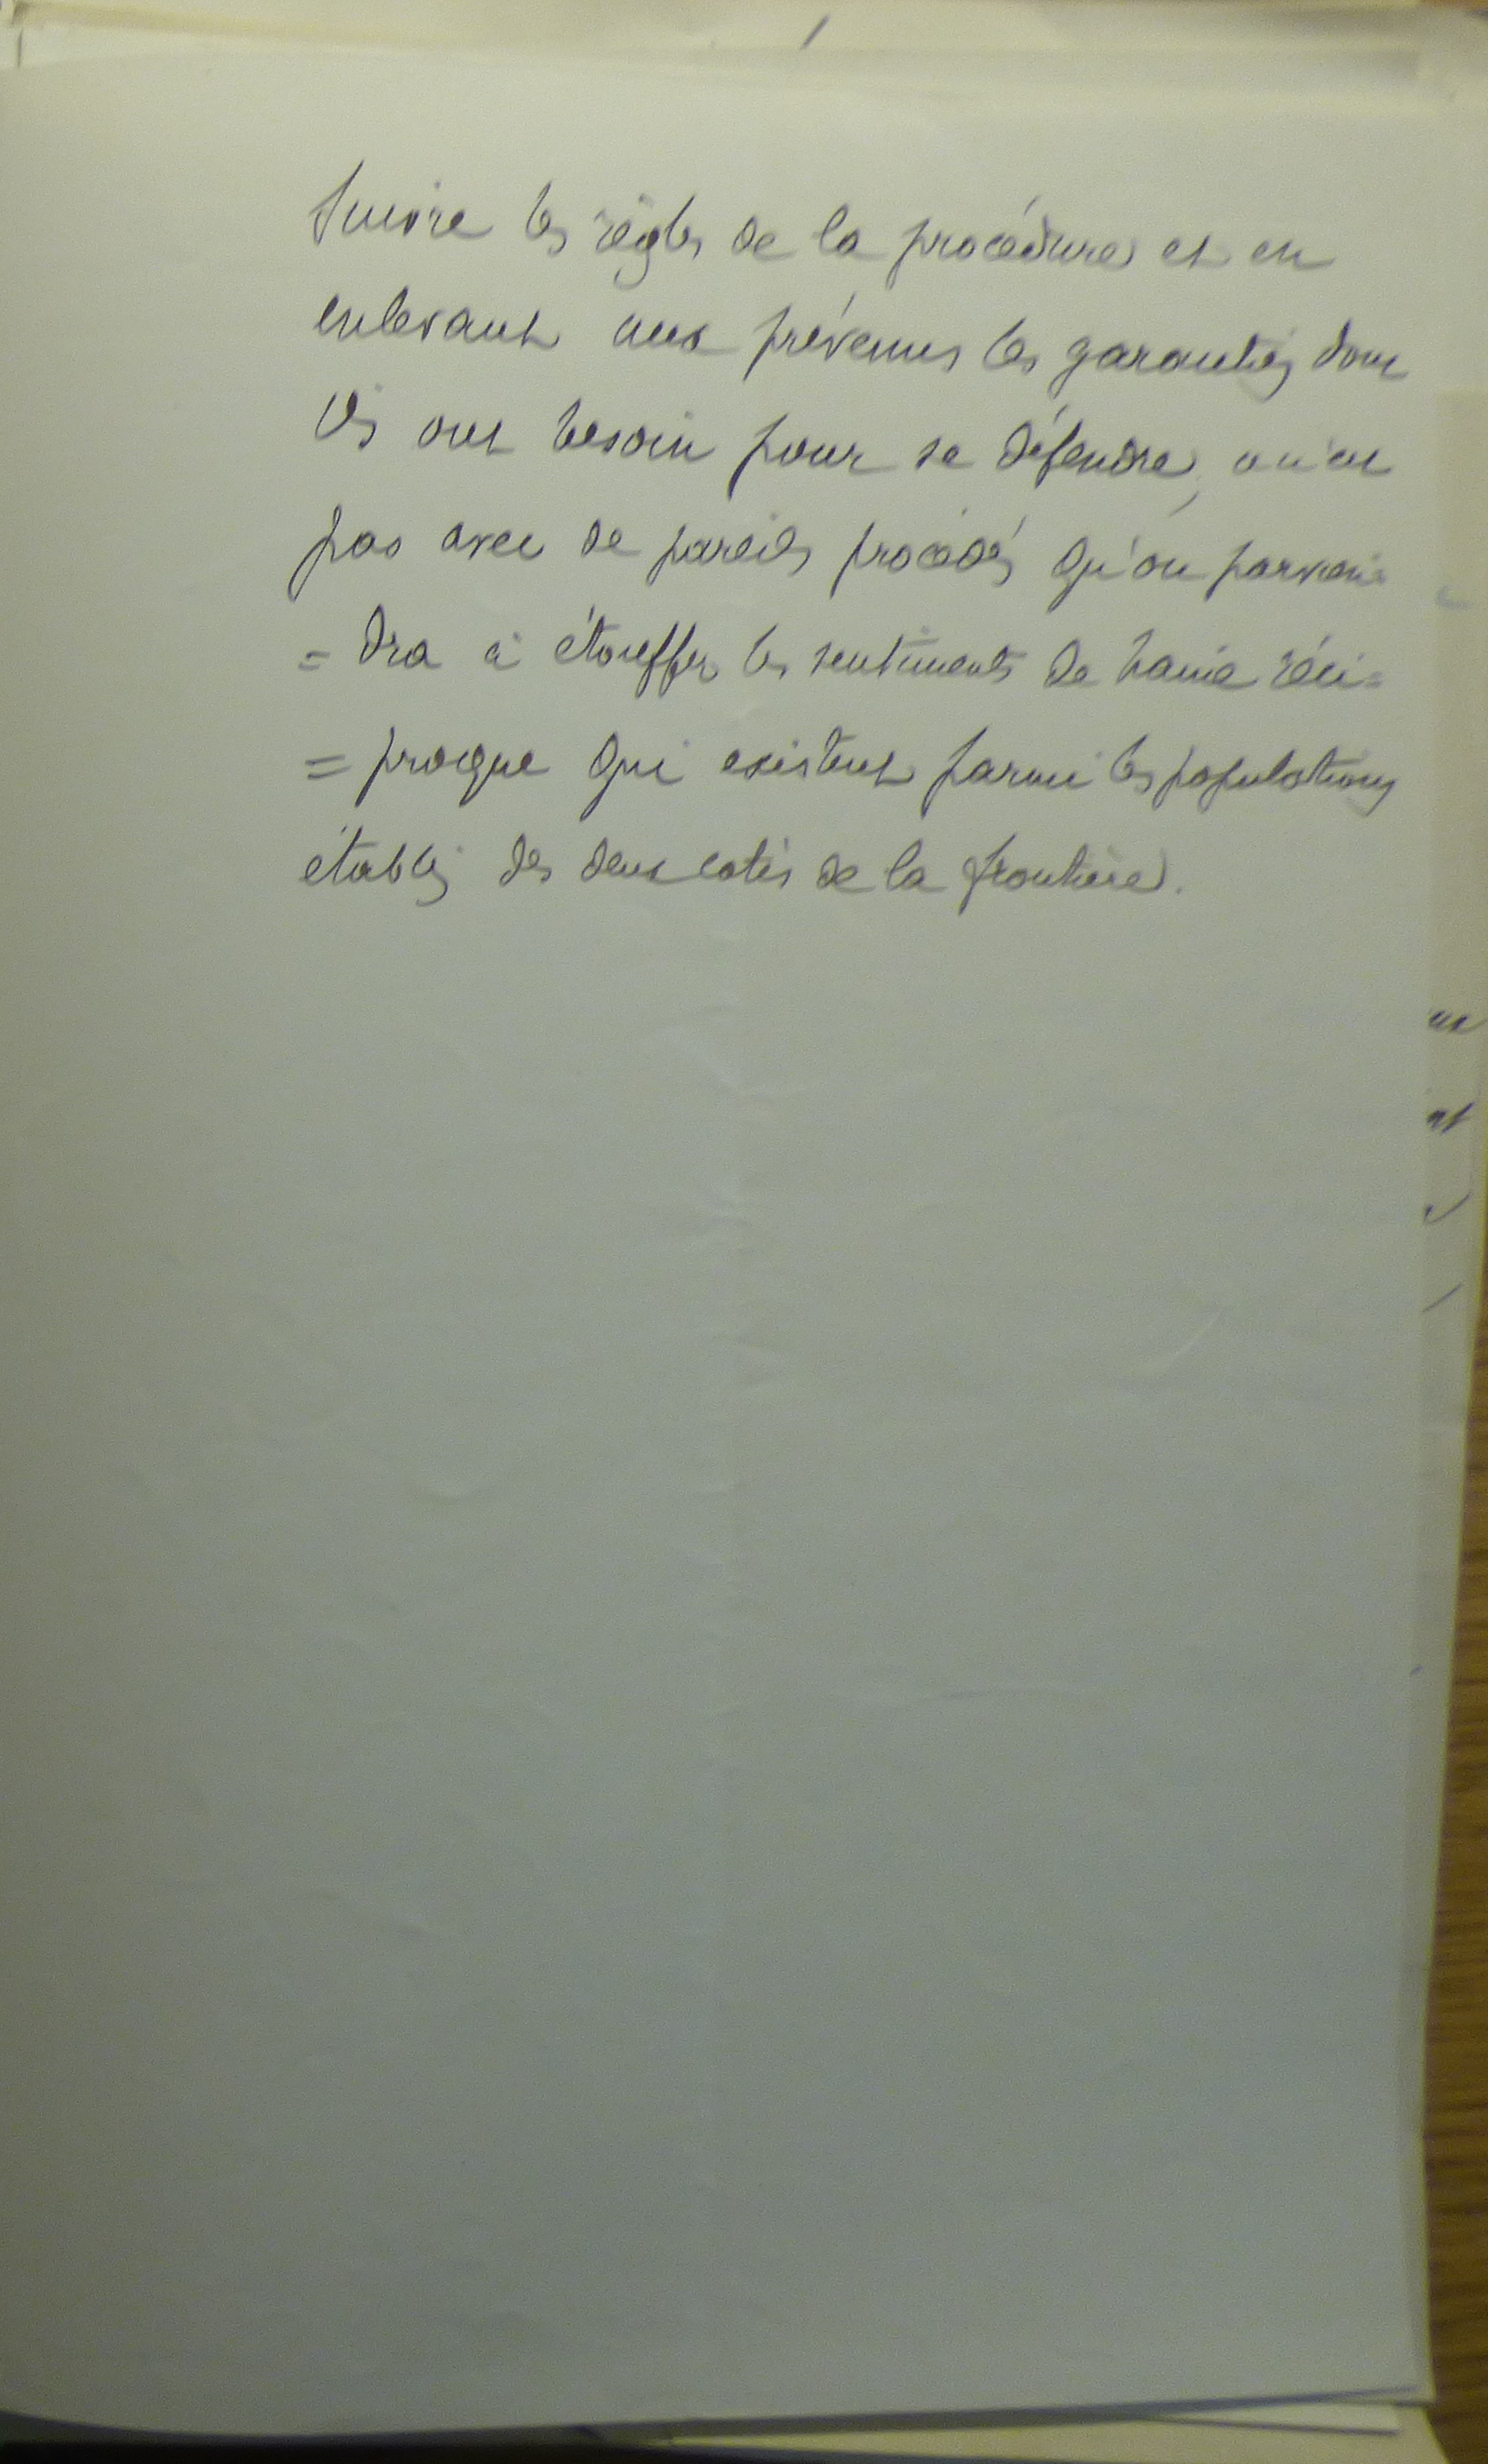 suivre les règles de la procédure et en
enlevant aux prévenus les garanties dont
ils ont besoin pour se défendre, ce n'est
pas avec de pareils procédés qu'on parvien-
= dra à étouffer les sentiments de haine réci=
= proque qui existent parmi les populations
établies des deux cotés de la frontière.